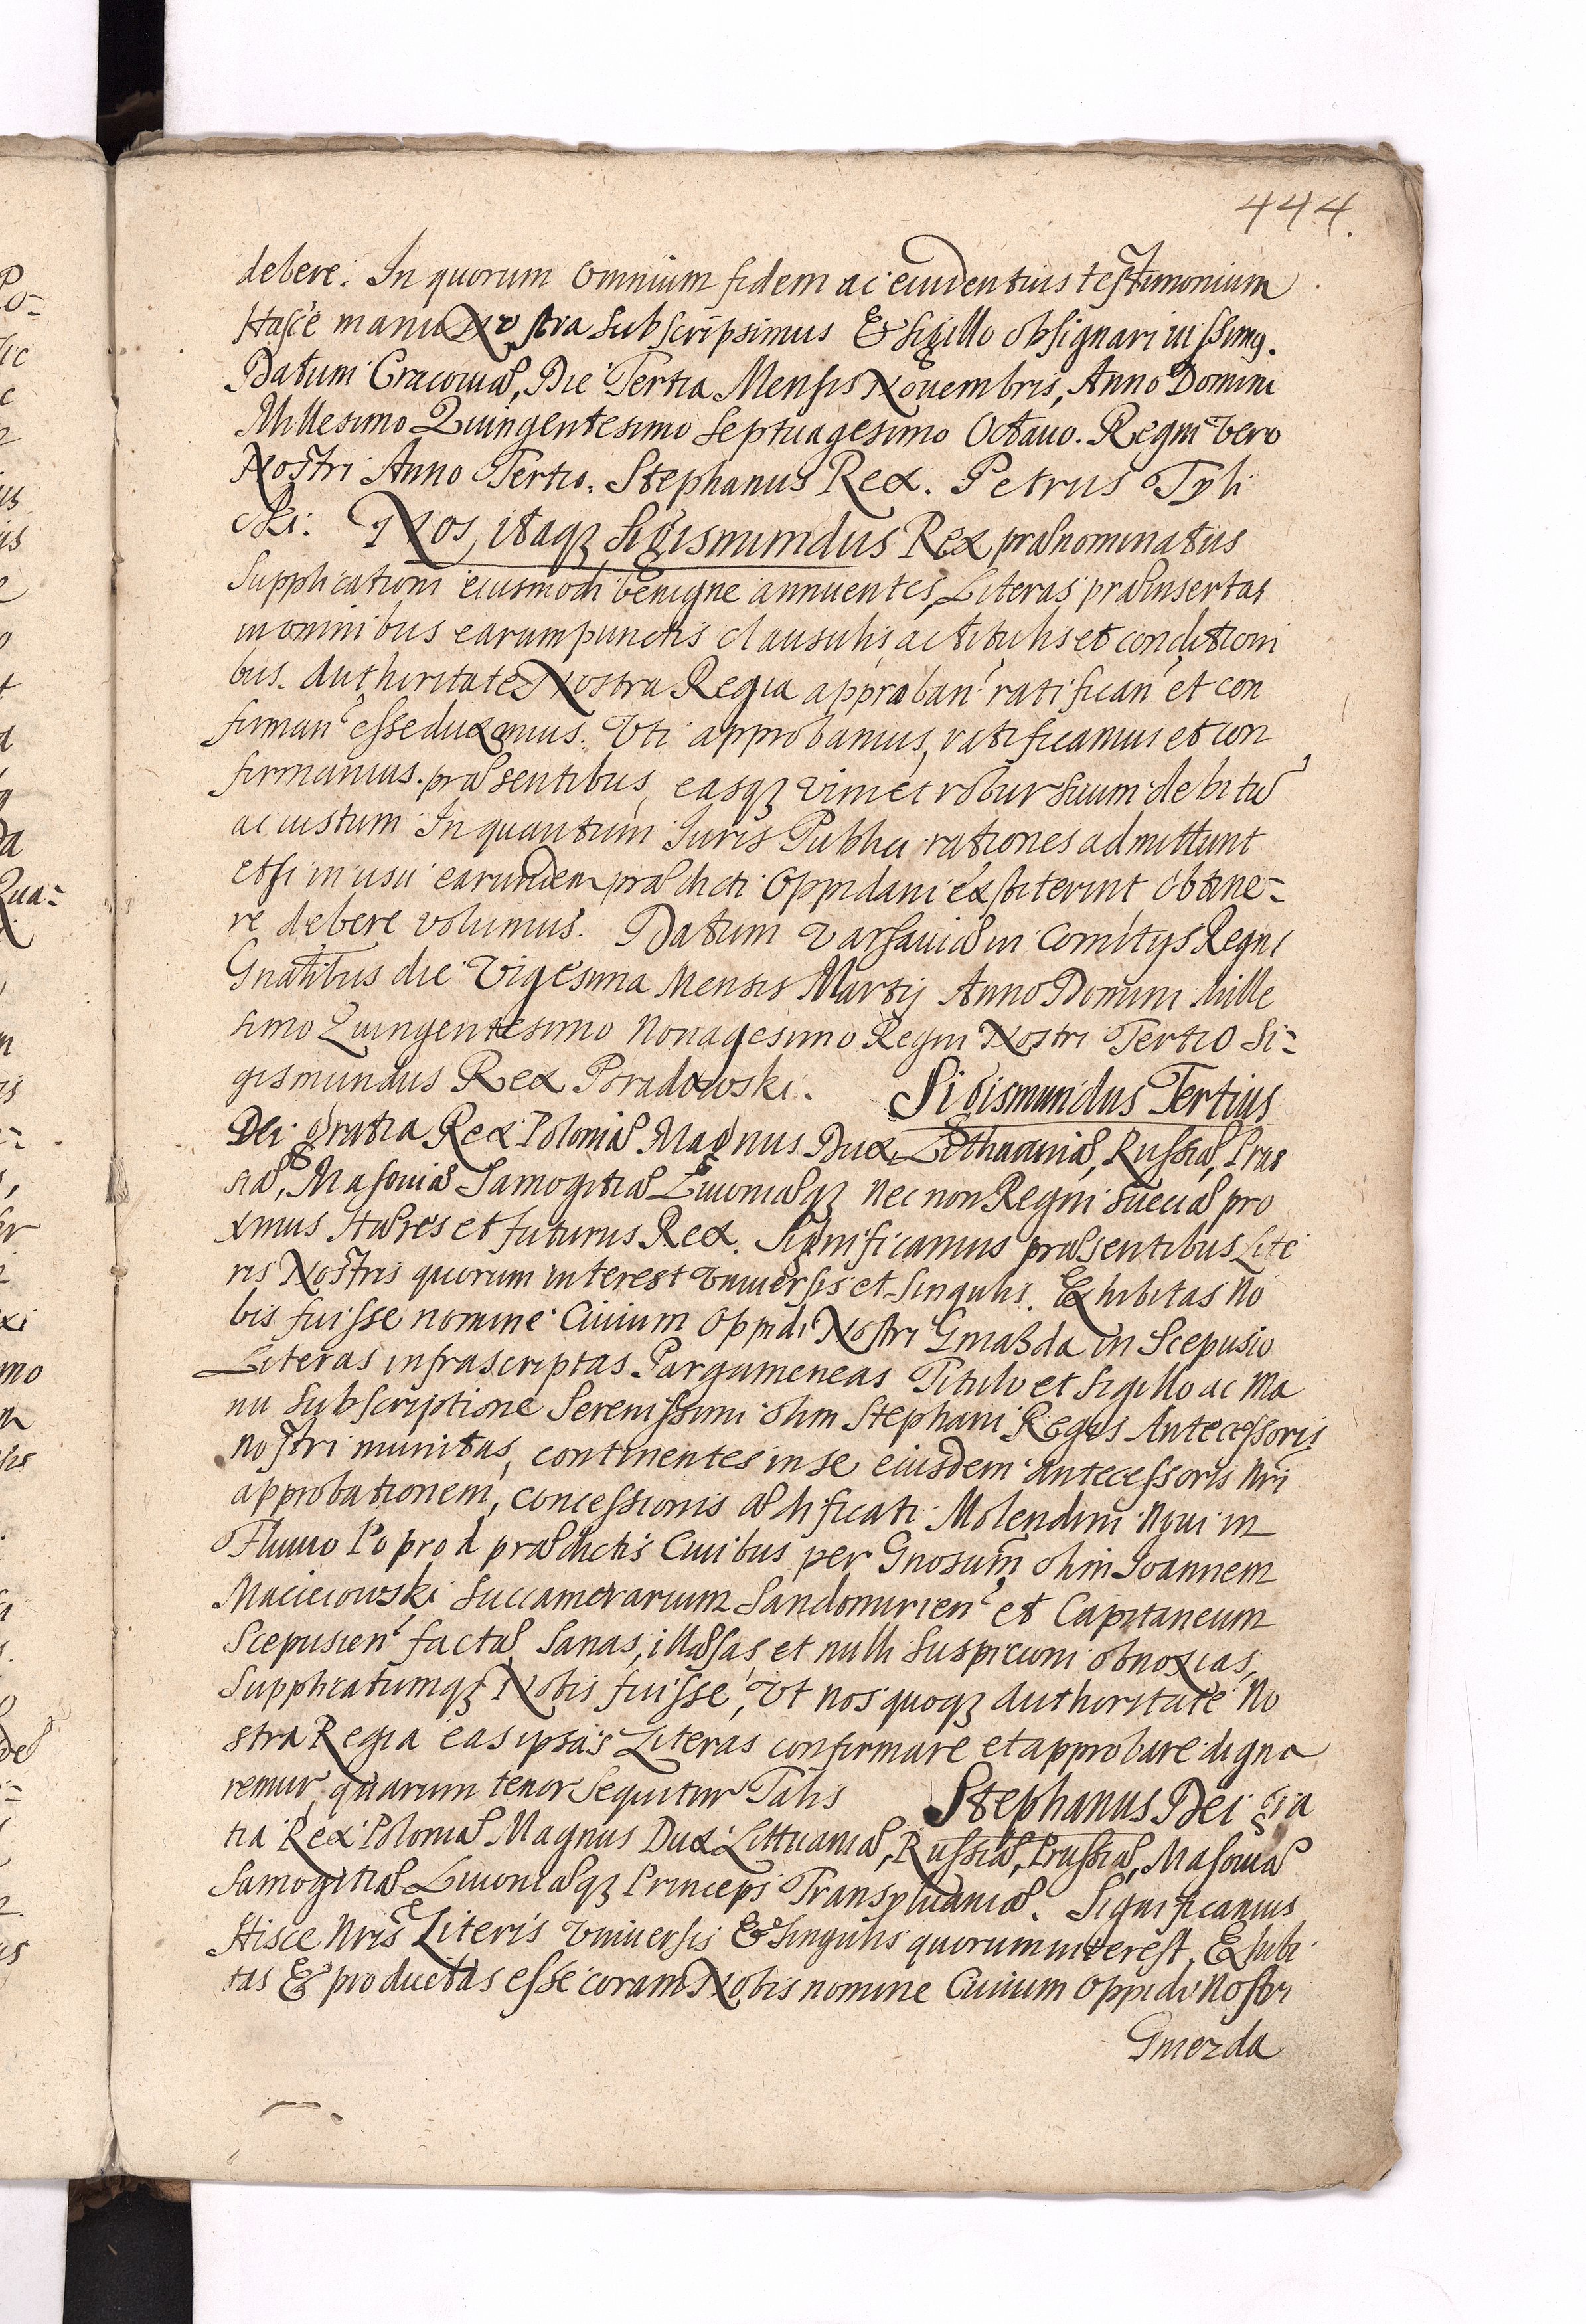 444.
debere. In quorum Omnium fidem ac euidentius testimonium
Hasce manu Nostra subscripsimus & sigillo obsignari iussimq.
Datum Cracouiæ, Die Tertia Mensis Nouembris, Anno Domini
Millesimo Quingentesimo Septuagesimo Octauo. Regni vero
Nostri Anno Tertio. Stephanus Rex. Petrus Tyli
cki. Nos itaqꝫ Sigismundus Rex prænominatus
Supplicationi eiusmodi benigne annuentes, Literas præinsertas
in omnibus earum punctis clausulis, ac titulis et conditioni
bus. Authoritate Nostra Regia approban ratifican et con
firman esse duximus. Vti approbamus, ratificamus et con
firmamus. præsentibus, easqꝫ vim et robur suum debitũ
ac iustum In quantum Iuris Publici rationes admittunt
et si in usu earundem prædicti Oppidani exstiterint obtine-
re debere volumus. Datum Varsauiæ in Comitijs Regni
Gnalibus die Vigesima Mensis Martij Anno Domini Mille
simo Quingentesimo Nonagesimo Regni Nostri Tertio Si-
gismundus Rex Poradowski. Sigismundus Tertius
Dei gratia Rex Poloniæ Magnus Dux Lithuaniæ, Russiæ, Prus
siæ, Masouiæ Samogitiæ Liuoniæqꝫ nec non Regni Sueciæ pro
ximus Hæres et futurus Rex. Significamus præsentibus Lite
ris Nostris quorum interest Vniuersis et Singulis. Exhibitas No
bis fuisse nomine Ciuium Oppidi Nostri Gmazda in Scepusio
Literas infrascriptas Pargameneas Titulo et Sigillo ac Ma
nu Subscriptione Serenissimi olim Stephani Regis Antecessoris
nostri munitas, continentes in se eiusdem Antecessoris Nri
approbationem, concessionis ædificati Molendini noui in
Fluuio Poprod prædictis Ciuibus per Gnosum olim Ioannem
Macieiowski Succamerarium Sandomirien et Capitaneum
Scepusien factæ, Sanas, illæsas, et nulli Suspicioni obnoxias,
Supplicatumqꝫ Nobis fuisse, Vt nos quoqꝫ Authoritate No
stra Regia eas ipsas Literas confirmare et approbare digna
remur, quarum tenor Sequitur Talis Stephanus Dei gra
tia Rex Poloniæ Magnus Dux Littuaniæ, Russiæ, Prussiæ, Masouiæ
Samogitiæ Liuoniæqꝫ Princeps Transyluaniæ. Significamus
Hisce Nris Literis Vniuersis & Singulis quorum interest, Exhibi
tas & productas esse coram Nobis nomine Ciuium Oppidi Nostri
Gmezda